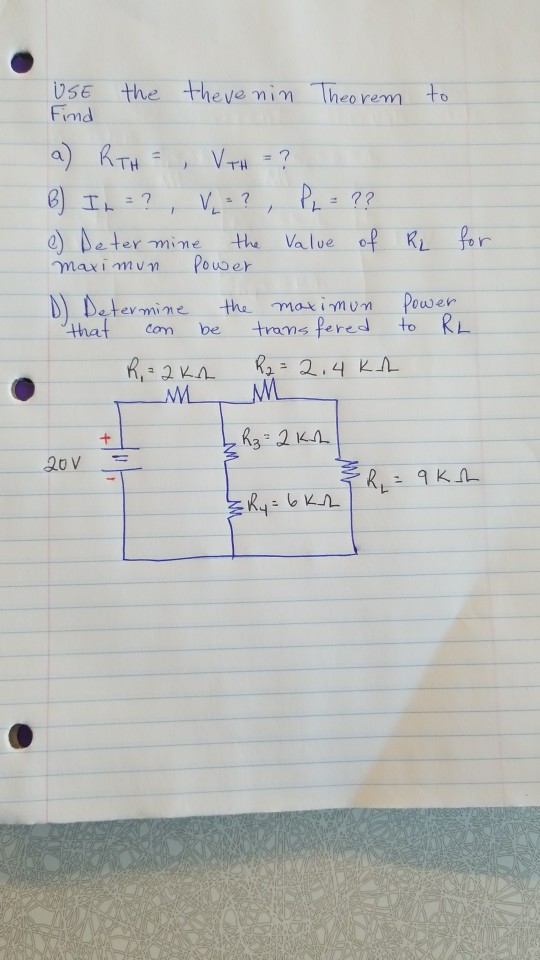 USE the thevenin Theorem to
Find
a) RTH = , VTH = ?
B) IL = ? , VL = ? , PL = ??
c) Determine the Value of RL for
maximun Power
D) Determine the maximun Power
that can be transfered to RL
R1 = 2 KΩ R2 = 2.4 KΩ
+
R3 = 2 KΩ
20V
-
RL = 9 KΩ
R4 = 6 KΩ